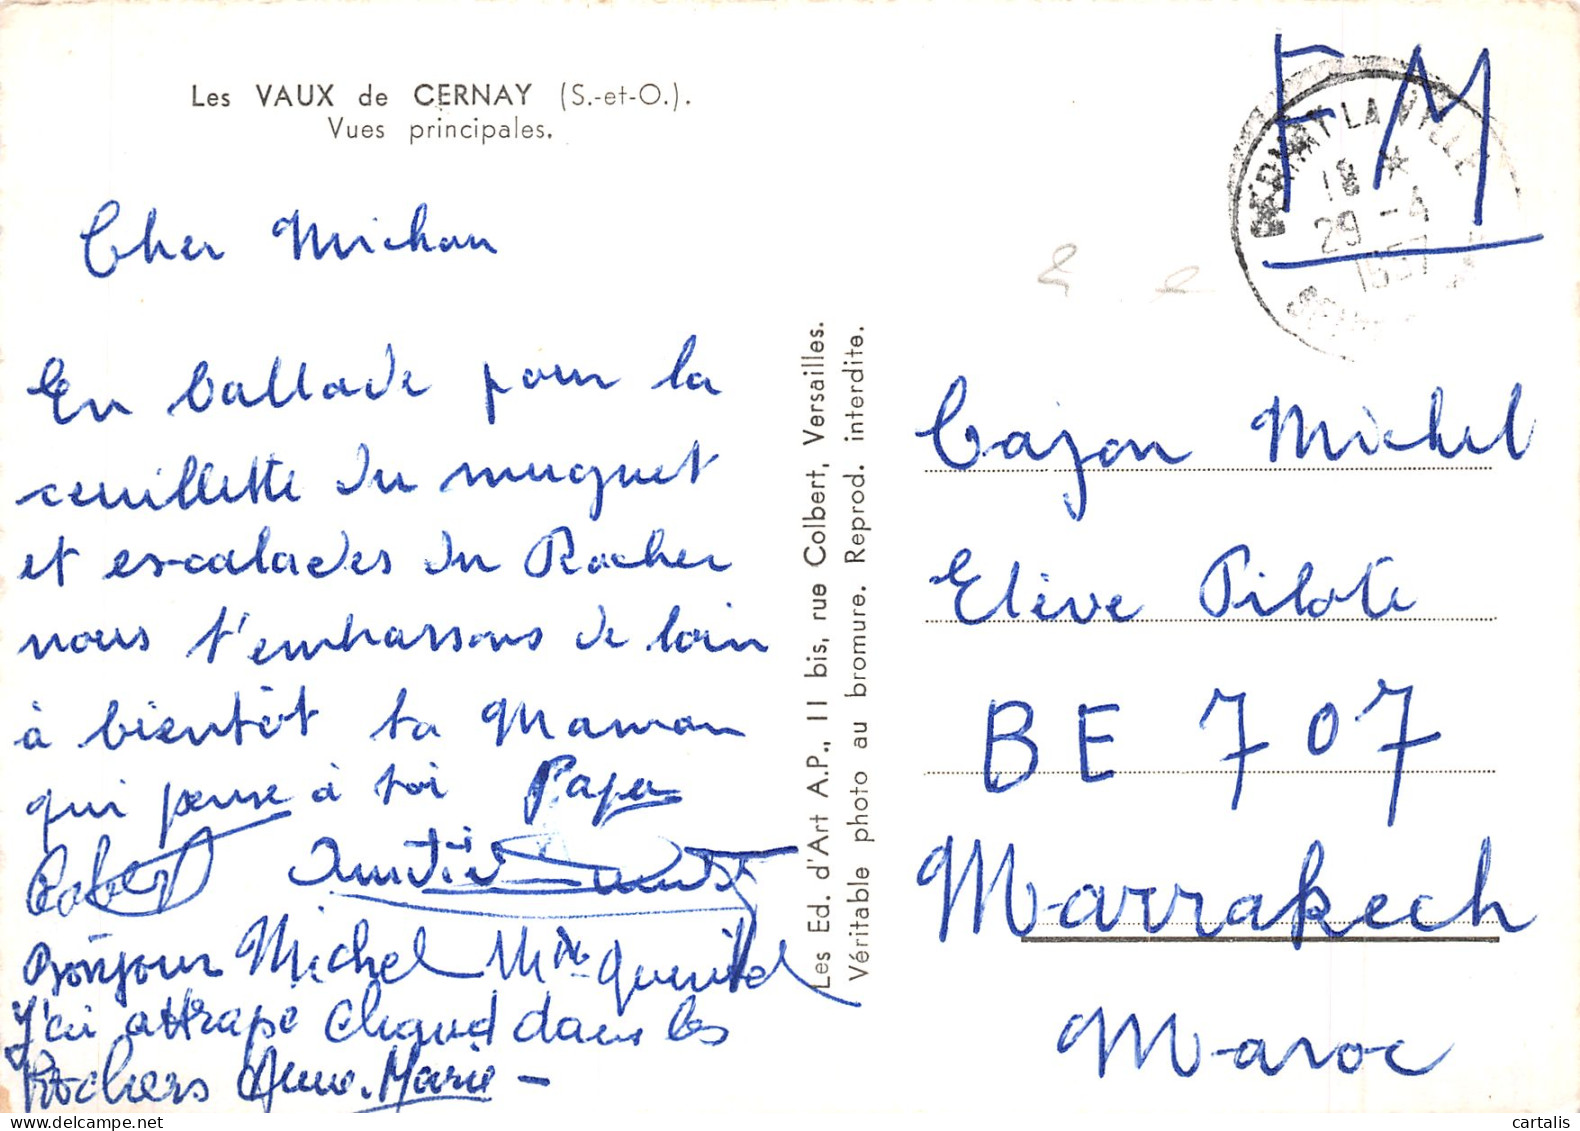 Les VAUX de CERNAY (S.-et-O.).
Vues principales.
Cher Michou
En ballade pour la
ceuillette du muguet
et escalades du Rocher
nous t'embrassons de loin
à bientôt ta Maman
qui pense à toi Papa
Robert
Bonjour Michel Mme
J'ai attrapé chaud dans les
Rochers Anne-Marie -
Les Ed. d'Art A.P., 11 bis, rue Colbert, Versailles.
Véritable photo au bromure. Reprod. interdite.
FM
LA VILLE
18 *
29 -4
1957
Cajon Michel
Elève Pilote
BE 707
Marrakech
Maroc
cartalis